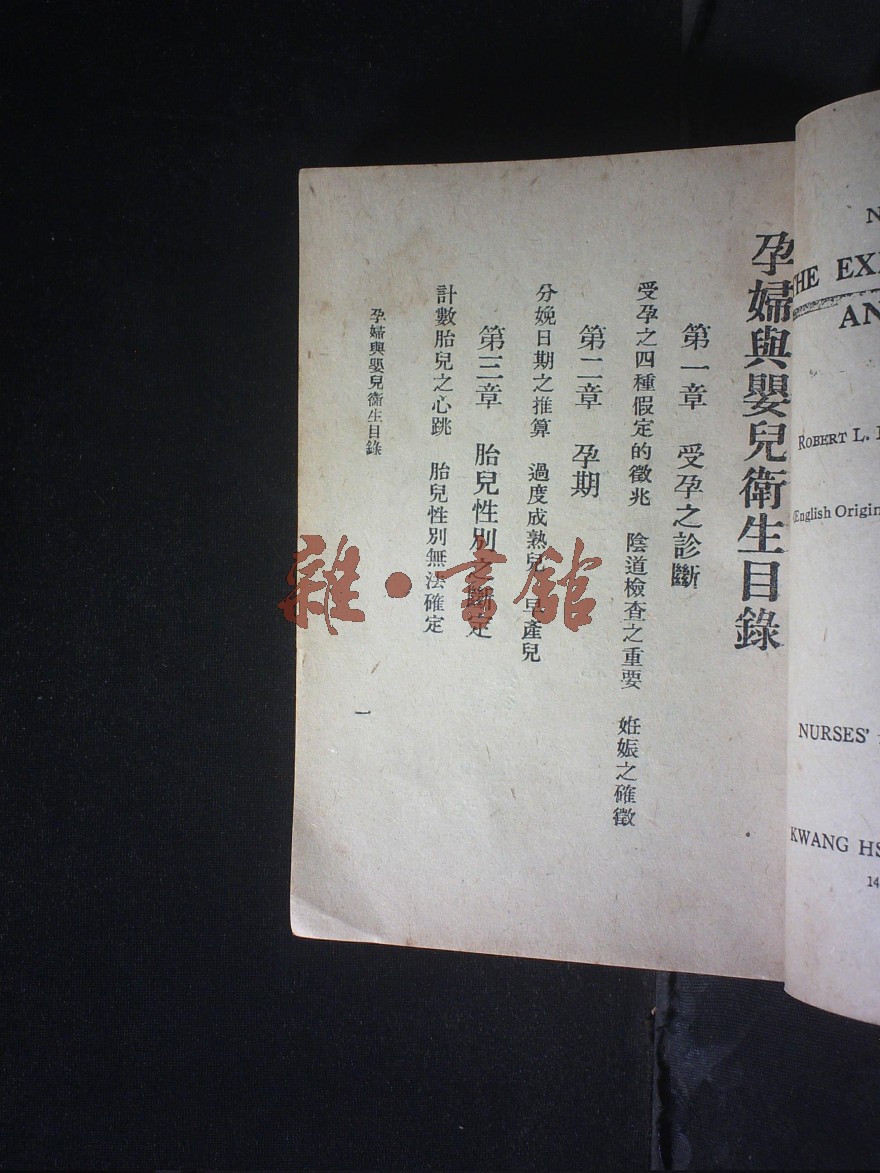 孕婦與嬰兒衛生目錄
第一章　受孕之診斷
受孕之四種假定的徵兆　陰道檢查之重要　姙娠之確徵
第二章　孕期
分娩日期之推算　過度成熟兒　早產兒
第三章　胎兒性別之斷定
計數胎兒之心跳　胎兒性別無法確定
孕婦與嬰兒衛生目錄
一
雜·書館
THE EX
AN
ROBERT L.
(English Origin
NURSES'
KWANG HS
14